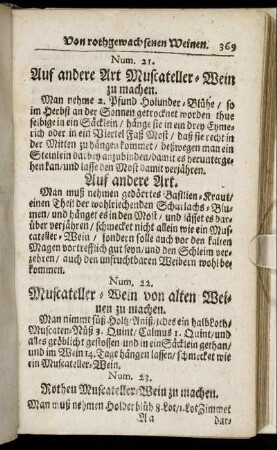 Von rothgewachsenen Weinen. 369
Num. 21.
Auf andere Art Muscateller-Wein
zu machen.
Man nehme 2. Pfund Holunder-Blühe / so
im Herbst an der Sonnen getrocknet worden / thue
selbige in ein Säcklein / hänge sie in ein drey Eyme-
rich oder in ein Viertel Faß Most / daß sie recht in
der Mitten zu hängen kommet / deßwegen man ein
Steinlein darbey anzubinden / damit es herunterge-
hen kan / und lasse den Most damit verjähren.
Auf andere Art.
Man muß nehmen gedörrtes Basilien-Kraut /
einen Theil der wohlriechenden Scharlachs-Blu-
men / und hänget es in den Most / und lässet es dar-
über verjähren / schmecket nicht allein wie ein Mus-
cateller-Wein / sondern solle auch vor den kalten
Magen vortrefflich gut seyn / und den Schleim ver-
zehren / auch den unfruchtbaren Weibern wohl be-
kommen.
Num. 22.
Muscateller-Wein von alten Wei-
nen zu machen.
Man nimmt süß Holtz / Aniß / jedes ein halb Loth /
Muscaten-Nüß 3. Quint / Calmus 1. Quint / und
alles gröblicht gestossen und in ein Säcklein gethan /
und im Wein 14. Tage hängen lassen / schmecket wie
ein Muscateller-Wein.
Num. 23.
Rothen Muscateller-Wein zu machen.
Man muß nehmen Holderblüh 8. Lot / 1. Lot Zimmet
Aa dar-